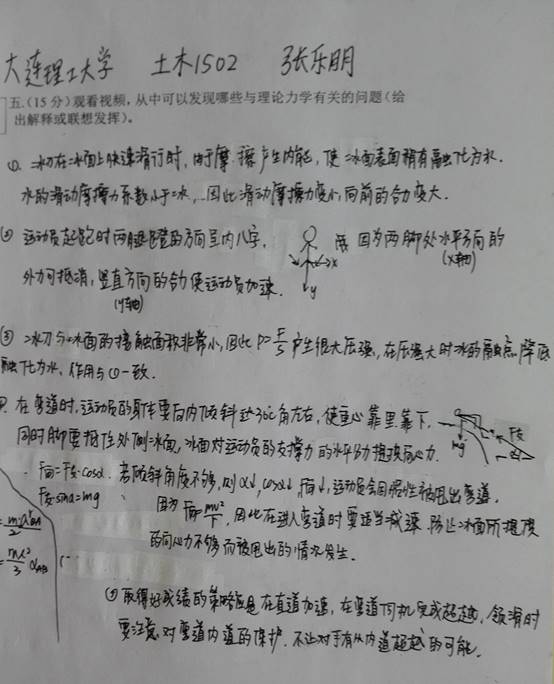 大连理工大学 土木1502 张乐朋
五.(15分)观看视频,从中可以发现哪些与理论力学有关的问题(给
出解释或联想发挥)。
①. 冰刀在冰面上快速滑行时,由于摩擦产生内能,使冰面表面稍有融化为水.
水的滑动摩擦力系数小于冰,因此滑动摩擦力变小,向前的合力变大.
② 运动员起跑时两腿蹬的方向呈内八字, 因为两脚处水平方向的
(x轴)
外力可抵消,竖直方向的合力使运动员加速.
(y轴)
x
y
③ 冰刀与冰面的接触面积非常小,因此 P=F/S 产生很大压强,在压强大时冰的融点降低
融化为水,作用与①一致.
在弯道时,运动员的身体要向内倾斜到30°角左右,使重心靠里靠下,
同时脚要抵住外侧冰面,冰面对运动员的支撑力的水平分力提供向心力.
mg
F支
F向=F支·cosα. 若倾斜角度不够,则α↓,cosα↓,F向↓,运动员会因惯性被甩出弯道.
F支sinα=mg
因为 F向=mv²/r,因此在进入弯道时要适当减速,防止冰面所提供
的向心力不够而被甩出的情况发生.
⑤ 取得好成绩的策略应是在直道加速,在弯道伺机完成超越,领滑时
要注意对弯道内道的保护,不让对手有从内道超越的可能.